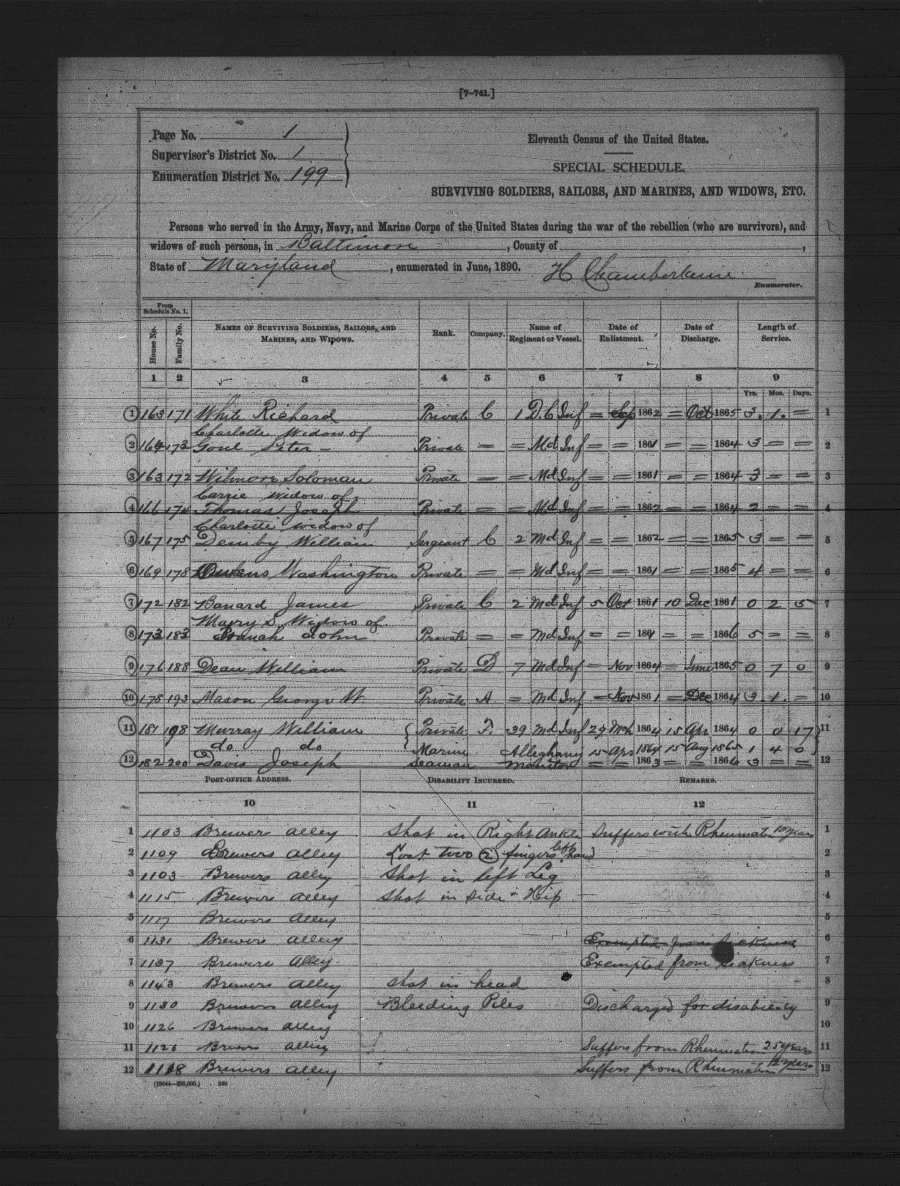 [7–741.]
Page No. 1
Supervisor's District No. 1
Enumeration District No. 199
Eleventh Census of the United States.
SPECIAL SCHEDULE.
SURVIVING SOLDIERS, SAILORS, AND MARINES, AND WIDOWS, ETC.
Persons who served in the Army, Navy, and Marine Corps of the United States during the war of the rebellion (who are survivors), and
widows of such persons, in Baltimore, County of ,
State of Maryland, enumerated in June, 1890. H Chamberlaine
Enumerator.
From Schedule No. 1.
House No. Family No. NAMES OF SURVIVING SOLDIERS, SAILORS, AND MARINES, AND WIDOWS. Rank. Company. Name of Regiment or Vessel. Date of Enlistment. Date of Discharge. Length of Service.
1 2 3 4 5 6 7 8 9
Yrs. Mos. Days.
1 163 171 White Richard Private C 1 D.C Inf = Sep 1862 = Oct 1865 3. 1. = 1
Charlotte Widow of
2 164 173 Peter – Private = = Md Inf = = 1861 = = 1864 3 = = 2
3 163 172 Wilmore Soloman Private = = Md Inf = = 1861 = = 1864 3 = = 3
Carrie widow of
4 166 174 Thomas Joseph Private = = Md Inf = = 1862 = = 1864 2 = = 4
Charlotte widow of
5 167 175 Demby William Sergeant C 2 Md Inf = = 1862 = = 1865 3 = = 5
6 169 178 Owens Washington Private = = Md Inf = = 1861 = = 1865 4 = = 6
7 172 182 Banard James Private C 2 Md Inf 5 Oct 1861 10 Dec 1861 0 2 5 7
Mary S. Widow of
8 173 183 John Private = = Md Inf = = = = 1866 5 = = 8
9 176 188 Dean William Private D 7 Md Inf = Nov 1864 = June 1865 0 7 0 9
10 178 193 Mason George W. Private A = Md Inf = Nov 1861 = Dec 1864 3 1. = 10
11 181 198 Murray William { Private F. 39 Md Inf 29 Mch 1864 15 Apr 1864 0 0 17 } 11
do do Marine Alleghany 15 Apr 1864 15 Aug 1865 1 4 0
12 182 200 Davis Joseph Seaman Monitor = = 1863 = = 1866 3 = = 12
POST-OFFICE ADDRESS. DISABILITY INCURRED. REMARKS.
10 11 12
1 1103 Brewers alley Shot in Right Ankle Suffers with Rheumatis 10 years 1
2 1109 Brewers alley Lost two (2) fingers left hand 2
3 1103 Brewers alley Shot in left Leg 3
4 1115 Brewers alley Shot in Side & Hip 4
5 1117 Brewers Alley 5
6 1131 Brewers alley Exempted from Sickness 6
7 1137 Brewers Alley Exempted from Sickness 7
8 1143 Brewers alley Shot in head 8
9 1130 Brewers alley Bleeding Piles Discharged for disability 9
10 1126 Brewers alley 10
11 Brewers alley Suffers from Rheumatism 25 years 11
12 1118 Brewers alley Suffers from Rheumatism years 12